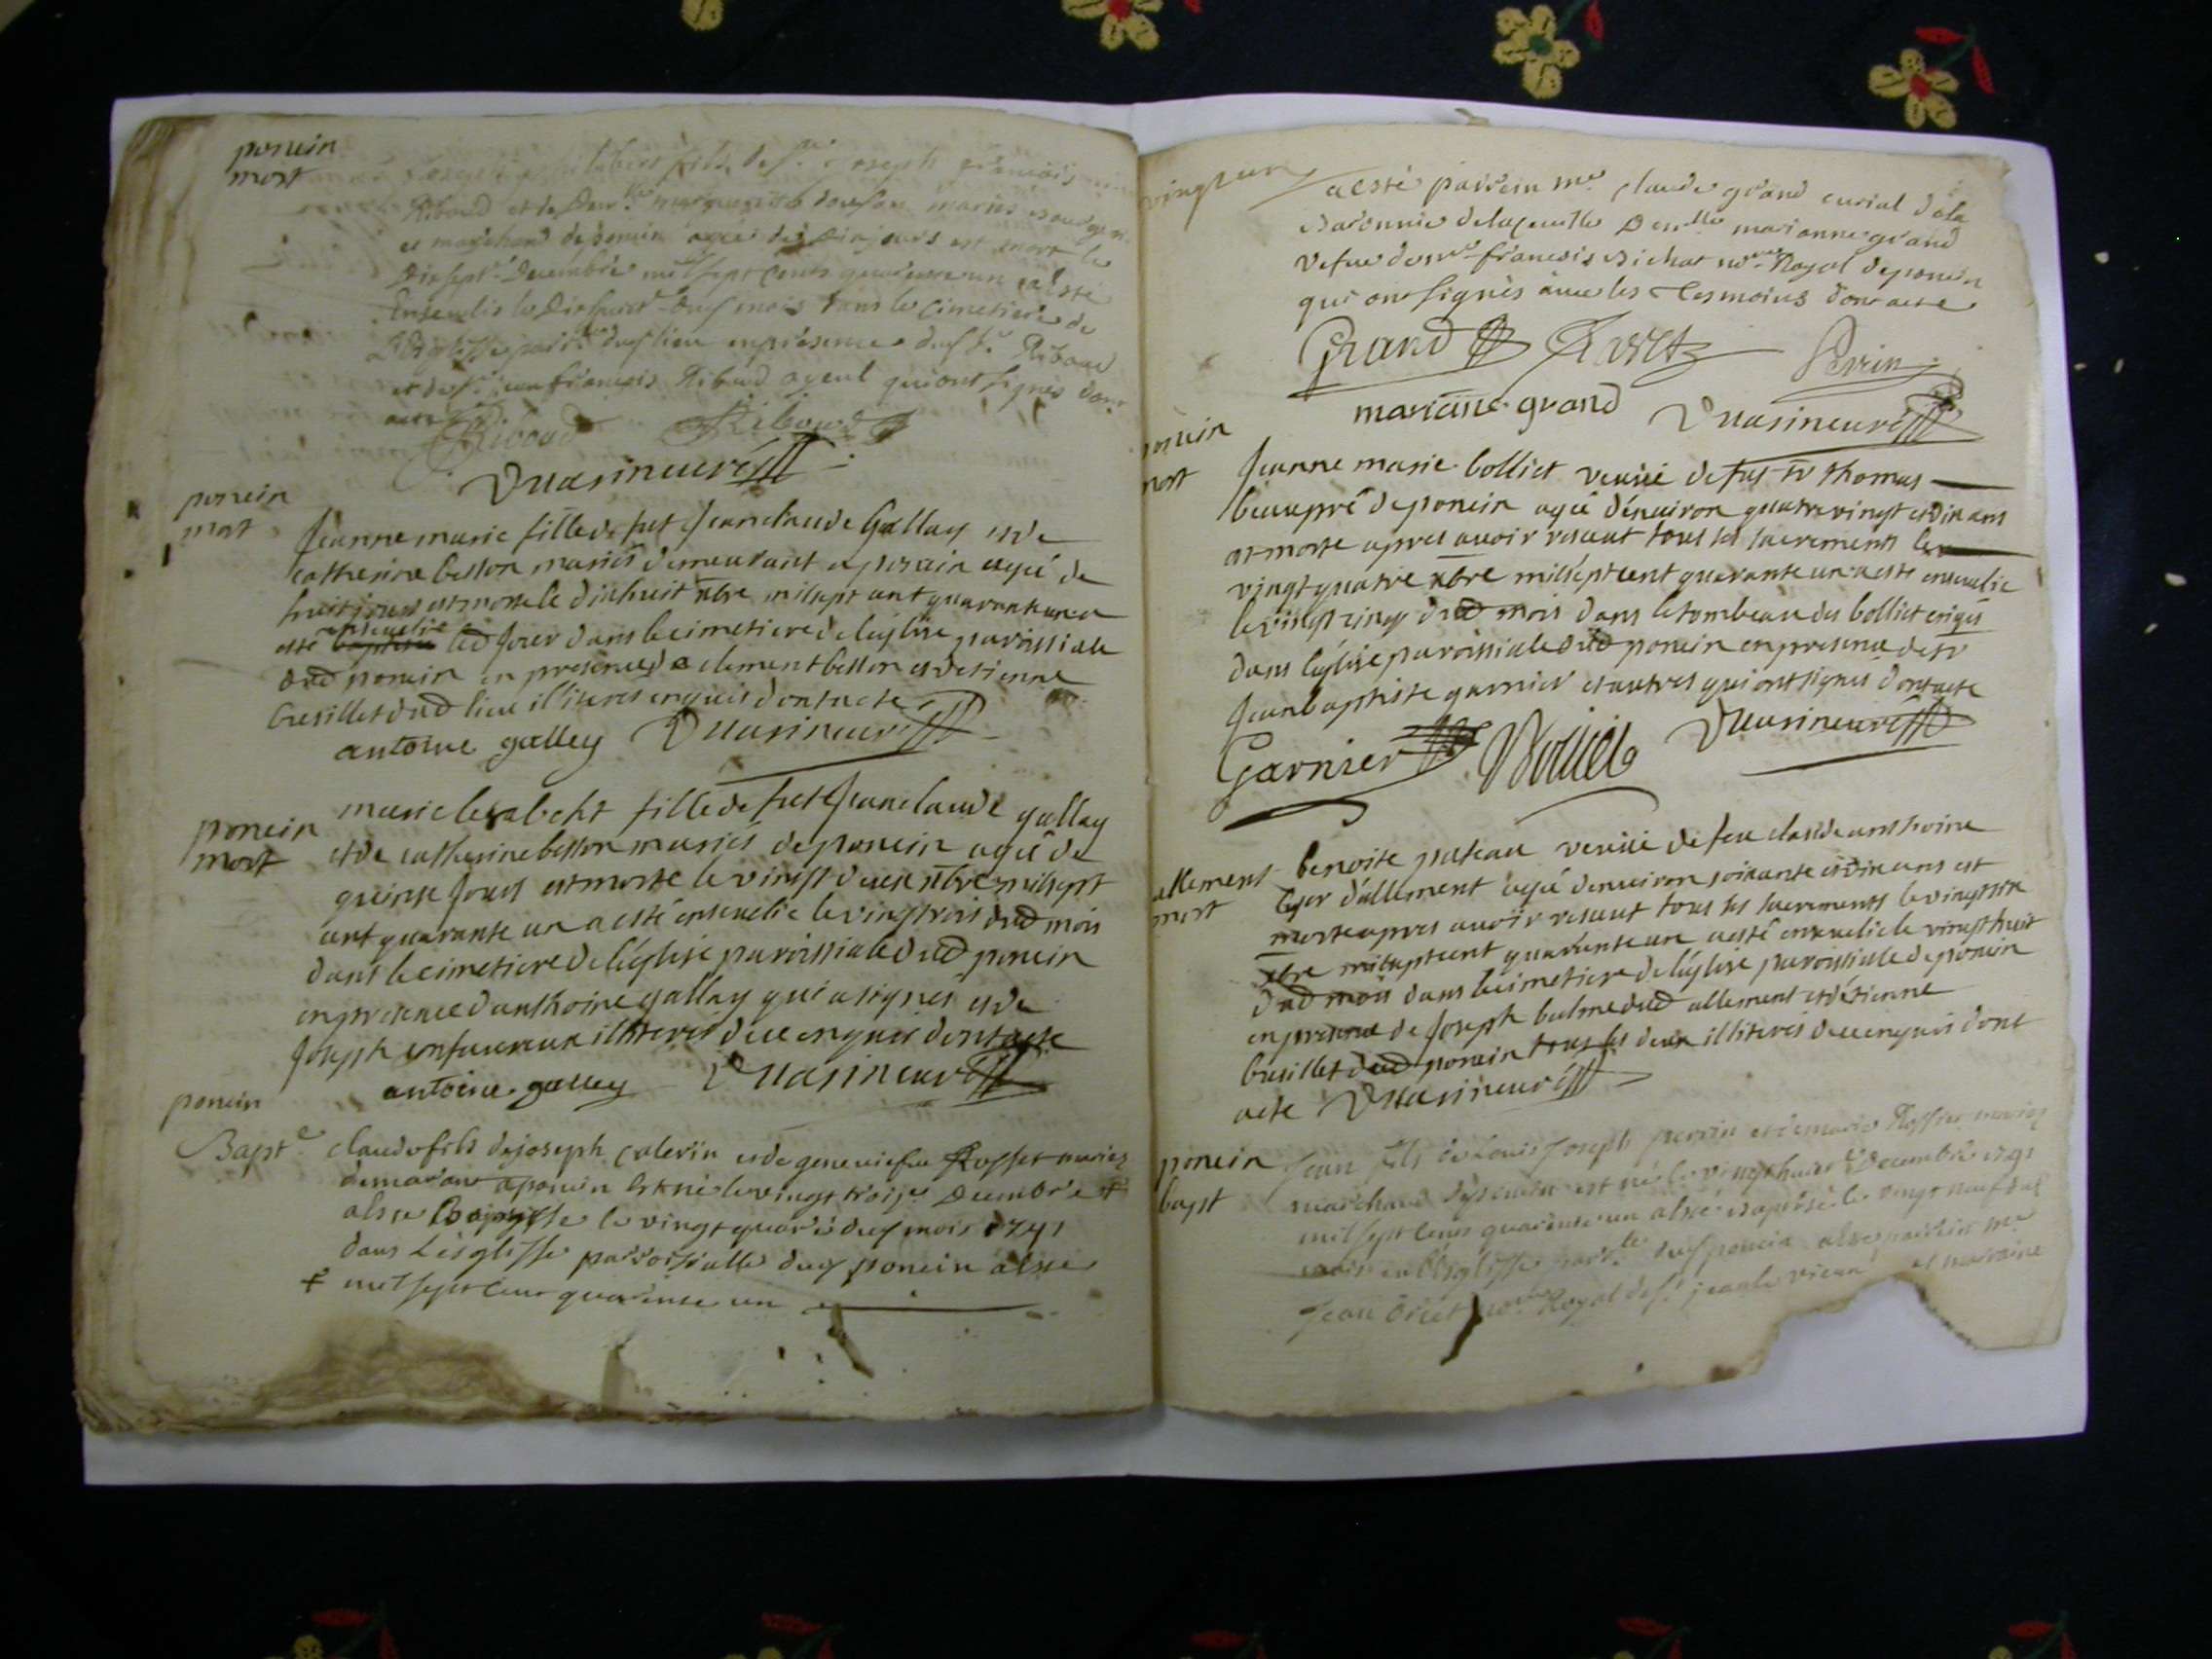 poncin
mort
fils de sr joseph françois
Riboud et de marguerite mariés bourgeois
et marchand de poncin agé de dix jours est mort le
Dixsept Decembre mil sept cents quarente un a esté
Ensevelis le Dixhuit dud mois dans le cimetiere de
L'Esglisse duf lieu en présence duf sr Riboud
et de sr jean françois Riboud ayeul qui ont signés dont
acte
Riboud Riboud
Duasincuré
poncin
mort
Jeanne marie fille de fut Jean claude Gallay et de
catherine besson mariés demeurant a poncin agée de
huit jours est morte le dixhuit xbre mil sept cent quarante un a
esté ensevelie led jour dans le cimetiere de l'église paroissiale
dud poncin en presence de clement besson et detienne
bresillet dud lieu illiteres enquis dont acte
antoine galley Duasincuré
poncin
mort
marie fille de fut Jean claude gallay
et de catherine besson mariés de poncin agée de
quinse Jours est morte le vingt deux xbre mil sept
cent quarante un a esté ensevelie le vingt trois dud mois
dans le cimetiere de l'église paroissiale dud poncin
en presence d'anthoine gallay qui a signes et de
Joseph illiteres de ce enquis dont acte
antoine galley Duasincuré
poncin
Bapte
claude fils de joseph et de geneviefve Rosset mariez
demorant a poncin Est né le vingt trois Decembre †
a esté Baptisse le vingt quatre duf mois 1741
dans L'esglisse parroissialle duf poncin a esté
† mil sept cent quarente un
a esté parrein me claude grand curial de la
Baronnie de Delle marianne grand
vefve de me françois Bichat nore Royal de poncin
qui ont signés avec les tesmoins dont acte
Grand Perrin
marianne grand Duasincuré
poncin
mort
Jeanne marie bolliet veuve de fut sr thomas
beaupré de poncin agée d'environ quatre vingt et dix ans
est morte apres avoir receut tous les sacrements le
vingt quatre xbre mil sept cent quarante un a esté ensevelie
le vingt cinq dud mois dans le tombeau des bolliet erigés
dans l'église paroissiale dud poncin en presence de sr
Jean baptiste garnier et autres qui ont signes dont acte
Garnier Bolliet Duasincuré
allement
mort
benoite pateau veuve de feu claude anthoine
leger d'allement agée d'environ soixante et dix ans est
morte apres avoir receut tous les sacrements le vingt six
xbre mil sept cent quarante un a esté ensevelie le vingt huit
dud mois dans le cimetiere de l'église paroissiale de poncin
en presence de Joseph balme dud allement et d'etienne
bresillet dud poncin tous les deux illiteres de ce enquis dont
acte Duasincuré
poncin
bapt
Jean fils de Louis Joseph perrin et de marie mariez
marchand de poncin est né le vingt huit Decembre 1741
mil sept cents quarente un a esté baptisé le vingt neuf dud
mois en l'esglisse duf poncin a esté parrein me
Jean Royal et marraine